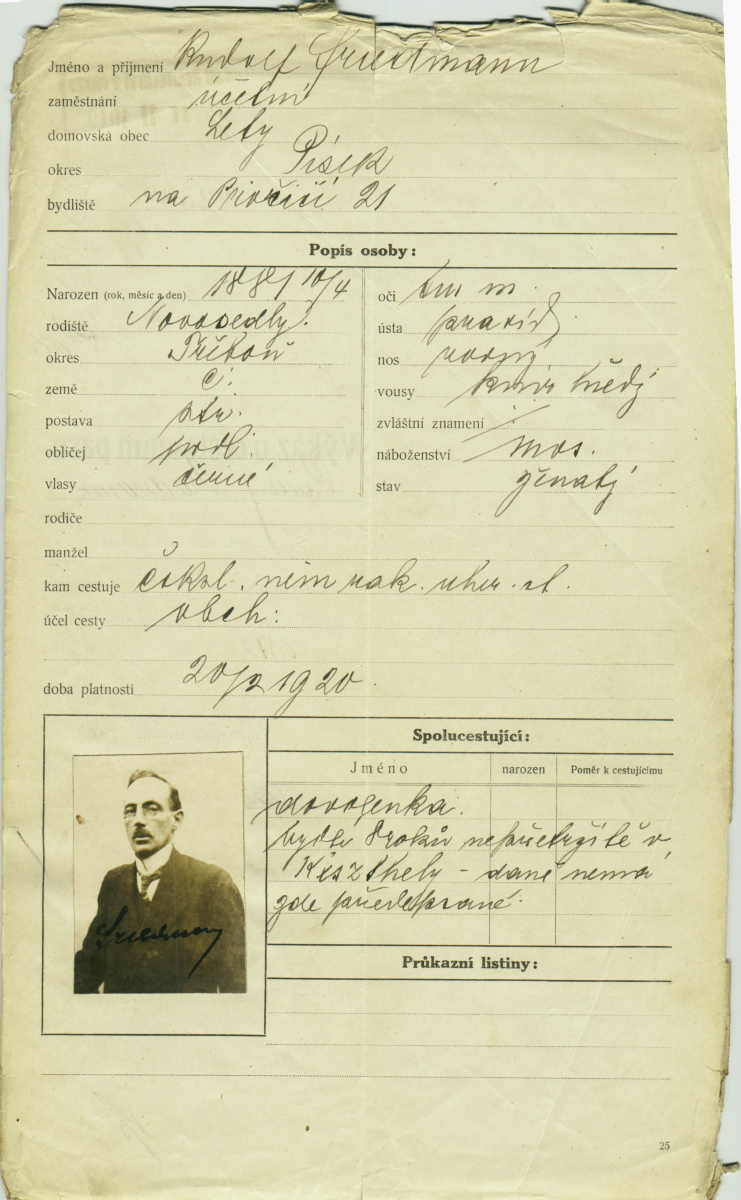 Jméno a příjmení Rudolf Friedmann
zaměstnání účetní
domovská obec Lety
okres Písek
bydliště na Poříčí 21
Popis osoby:
Narozen (rok, měsíc a den) 1881 10/4
rodiště Novosedly
okres Třeboň
země Č.
postava stř.
obličej podl.
vlasy černé
oči tm m.
ústa pravid.
nos rovný
vousy knír hnědý
zvláštní znamení /
náboženství mos.
stav ženatý
rodiče
manžel
kam cestuje čsksl. něm rak. uher. st.
účel cesty obch:
doba platnosti 20/2 1920
Spolucestující:
Jméno narozen Poměr k cestujícímu
bydlí 8 roků nepřetržitě v
Keszthely - daně nemá
zde předepsané.
Friedmann
Průkazní listiny:
25